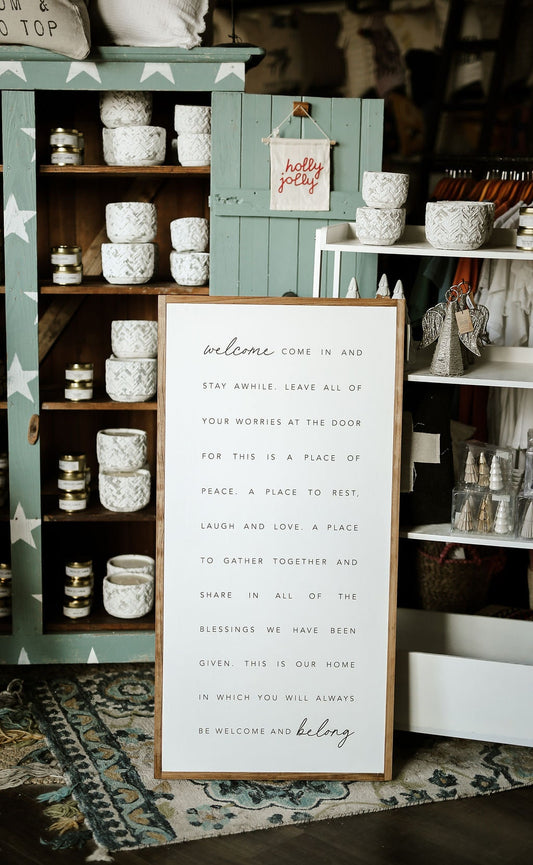 M &
O TOP
holly
jolly
welcome COME IN AND
STAY AWHILE. LEAVE ALL OF
YOUR WORRIES AT THE DOOR
FOR THIS IS A PLACE OF
PEACE. A PLACE TO REST,
LAUGH AND LOVE. A PLACE
TO GATHER TOGETHER AND
SHARE IN ALL OF THE
BLESSINGS WE HAVE BEEN
GIVEN. THIS IS OUR HOME
IN WHICH YOU WILL ALWAYS
BE WELCOME AND belong